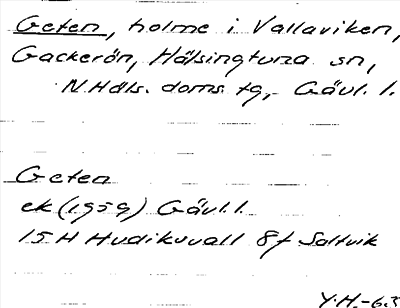 Geten, holme i Vallaviken,
Gackerön, Hälsingtuna sn,
N.Hdls. doms. tg,- Gävl. l.
Geten
ek (1959) Gävl. l.
15 H Hudiksvall 8f Saltvik
Y.H.-63